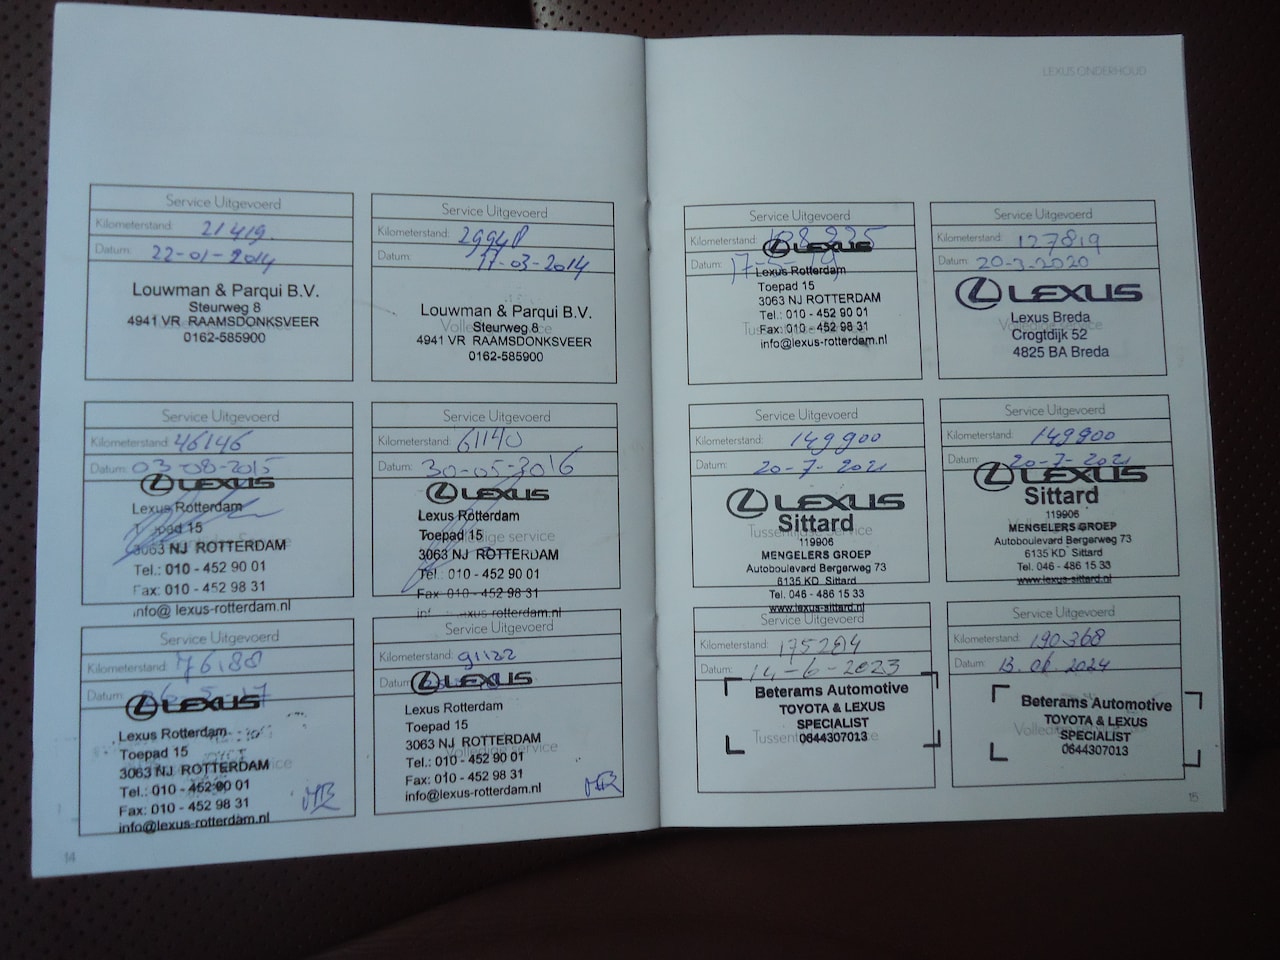 LEXUS ONDERHOUD
Service Uitgevoerd
Kilometerstand: 21419
Datum: 22-01-2014
Louwman & Parqui B.V.
Steurweg 8
4941 VR RAAMSDONKSVEER
0162-585900
Service Uitgevoerd
Kilometerstand:
Datum: 11-03-2014
Louwman & Parqui B.V.
Volledige service
Steurweg 8
4941 VR RAAMSDONKSVEER
0162-585900
Service Uitgevoerd
Kilometerstand: 46146
Datum: 03-08-2015
LEXUS
Lexus Rotterdam
Toepad 15
3063 NJ ROTTERDAM
Tel.: 010 - 452 90 01
Fax: 010 - 452 98 31
info@lexus-rotterdam.nl
Service Uitgevoerd
Kilometerstand: 61140
Datum: 30-05-2016
LEXUS
Lexus Rotterdam
Toepad 15
Volledige service
3063 NJ ROTTERDAM
Tel.: 010 - 452 90 01
Fax 010 - 452 98 31
lexus-rotterdam.nl
Service Uitgevoerd
Kilometerstand:
Datum:
LEXUS
Lexus Rotterdam
Toepad 15
3063 NJ ROTTERDAM
Tel.: 010 - 452 90 01
Fax: 010 - 452 98 31
info@lexus-rotterdam.nl
Service Uitgevoerd
Kilometerstand: 91122
Datum:
LEXUS
Lexus Rotterdam
Toepad 15
3063 NJ ROTTERDAM
Volledige service
Tel.: 010 - 452 90 01
Fax: 010 - 452 98 31
info@lexus-rotterdam.nl
14
Service Uitgevoerd
Kilometerstand:
LEXUS
Datum:
Lexus Rotterdam
Toepad 15
3063 NJ ROTTERDAM
Tel.: 010 - 452 90 01
Fax: 010 - 452 98 31
info@lexus-rotterdam.nl
Service Uitgevoerd
Kilometerstand: 127819
Datum: 20-3-2020
LEXUS
Lexus Breda
Crogtdijk 52
4825 BA Breda
Service Uitgevoerd
Kilometerstand: 149900
Datum: 20-7-2021
LEXUS
Sittard
119906
MENGELERS GROEP
Autoboulevard Bergerweg 73
6135 KD Sittard
Tel. 046 - 486 15 33
www.lexus-sittard.nl
Service Uitgevoerd
Kilometerstand: 149900
Datum: 20-7-2021
LEXUS
Sittard
119906
MENGELERS GROEP
Autoboulevard Bergerweg 73
6135 KD Sittard
Tel. 046 - 486 15 33
www.lexus-sittard.nl
Service Uitgevoerd
Kilometerstand: 175204
Datum: 14-6-2023
Beterams Automotive
TOYOTA & LEXUS
SPECIALIST
0644307013
Service Uitgevoerd
Kilometerstand: 190368
Datum: 13.06 2024
Beterams Automotive
TOYOTA & LEXUS
SPECIALIST
0644307013
15